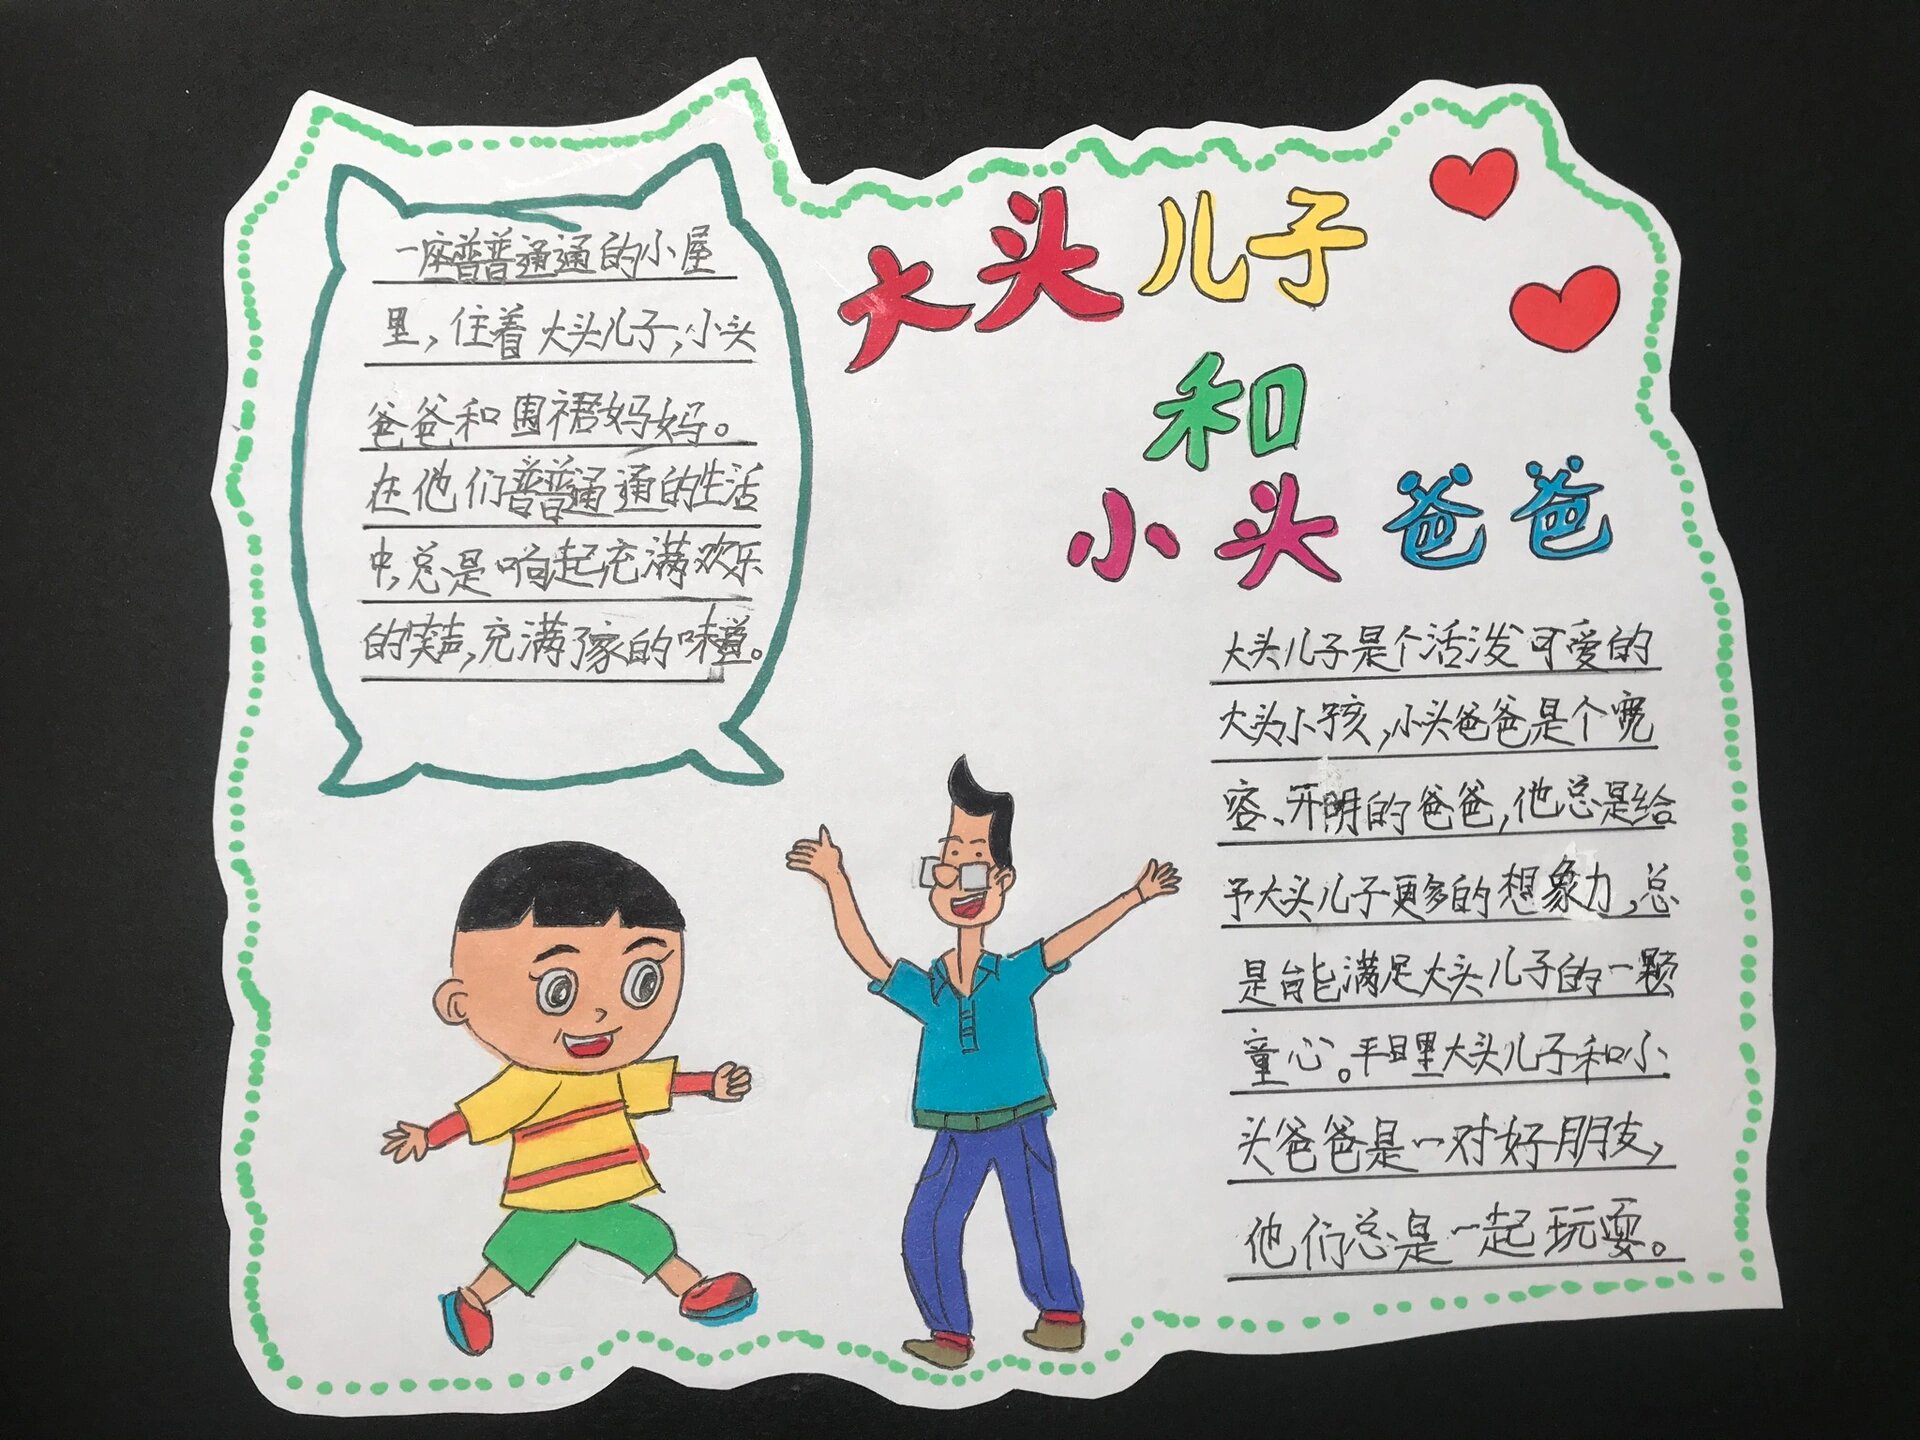 大头儿子
和
小头爸爸
一座普普通通的小屋
里,住着大头儿子,小头
爸爸和围裙妈妈。
在他们普普通通的生活
中,总是响起充满欢乐
的笑声,充满了家的味道。
大头儿子是个活泼可爱的
大头小孩,小头爸爸是个宽
容、开明的爸爸,他总是给
予大头儿子更多的想象力,总
是能满足大头儿子的一颗
童心。平日里大头儿子和小
头爸爸是一对好朋友,
他们总是一起玩耍。